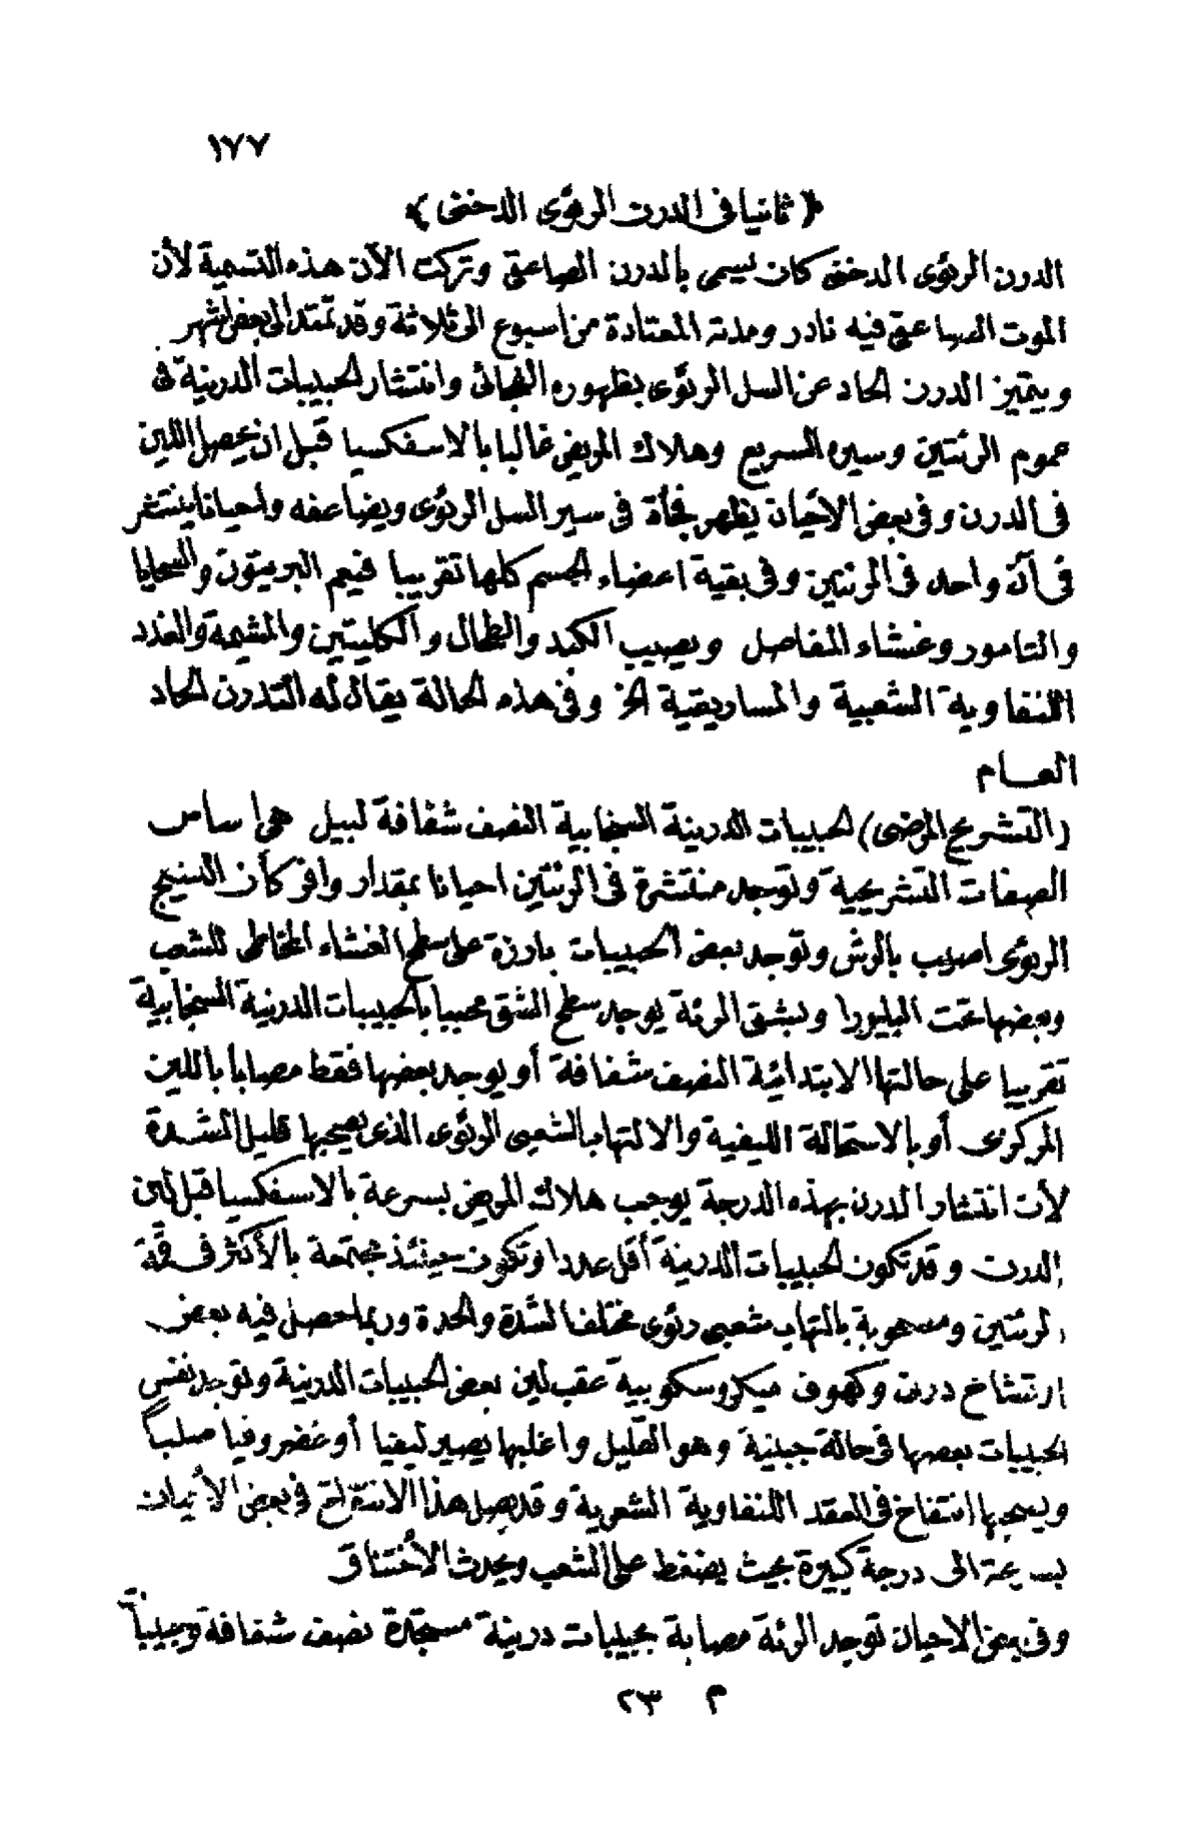 ١٧٧
﴿ ثانيا فى الدرن الرئوى الدخنى ﴾
الدرن الرئوى الدخنى كان يسمى بالدرن الصاعق وتركت الآن هذه التسمية لأن
الموت الصاعق فيه نادر ومدته المعتادة من اسبوع الى ثلاثة وقد تمتد الى بعض اشهر
ويتميز الدرن الحاد عن السل الرئوى بظهوره الفجائى وانتشار الحبيبات الدرنية فى
عموم الرئتين وسيره السريع وهلاك المريض غالبا بالاسفكسيا قبل ان يحصل اللين
فى الدرن وفى بعض الاحيان يظهر فجأة فى سير السل الرئوى ويضاعفه واحيانا ينتشر
فى آن واحد فى الرئتين وفى بقية اعضاء الجسم كلها تقريبا فيعم البريتون والسحايا
والتامور وغشاء المفاصل ويصيب الكبد والطحال والكليتين والمشيمة والغدد
اللنفاوية الشعبية والمساريقية الخ وفى هذه الحالة يقال له التدرن الحاد
العـام
(التشريح المرضى) الحبيبات الدرنية السنجابية النصف شفافة لبيل هى اساس
الصفات التشريحية وتوجد منتشرة فى الرئتين احيانا بمقدار وافر كأن النسيج
الرئوى اصيب بالرش وتوجد بعض الحبيبات بارزة على سطح الغشاء المخاطى للشعب
وبعضها تحت البليورا وبشق الرئة يوجد سطح الشق محببا بالحبيبات الدرنية السنجابية
تقريبا على حالتها الابتدائية النصف شفافة أو يوجد بعضها فقط مصاباً باللين
المركزى أو بالاستحالة الليفية والالتهاب الشعبى الرئوى الذى يصحبها قليل الشدة
لأن انتشار الدرن بهذه الدرجة يوجب هلاك المريض بسرعة بالاسفكسيا قبل لين
الدرن وقد تكون الحبيبات الدرنية أقل عددا وتكون حينئذ مجتمعة بالأكثر فى قمة
الرئتين ومصحوبة بالتهاب شعبى رئوى مختلف الشدة والحدة وربما حصل فيه بعض
ارتشاح درن وكهوف ميكروسكوبية عقب لين بعض الحبيبات الدرنية وتوجد نفس
الحبيبات بعضها فى حالة جبنية وهو القليل واغلبها يصير ليفيا أو غضروفيا صلباً
ويصحبها انتفاخ فى العقد اللنفاوية الشعبية وقد يصل هذا الانتفاخ فى بعض الأحيان
بسرعة الى درجة كبيرة بحيث يضغط على الشعب ويحدث الأختناق
وفى بعض الاحيان توجد الرئة مصابة بحبيبات درنية نصف شفافة
م ٢٣